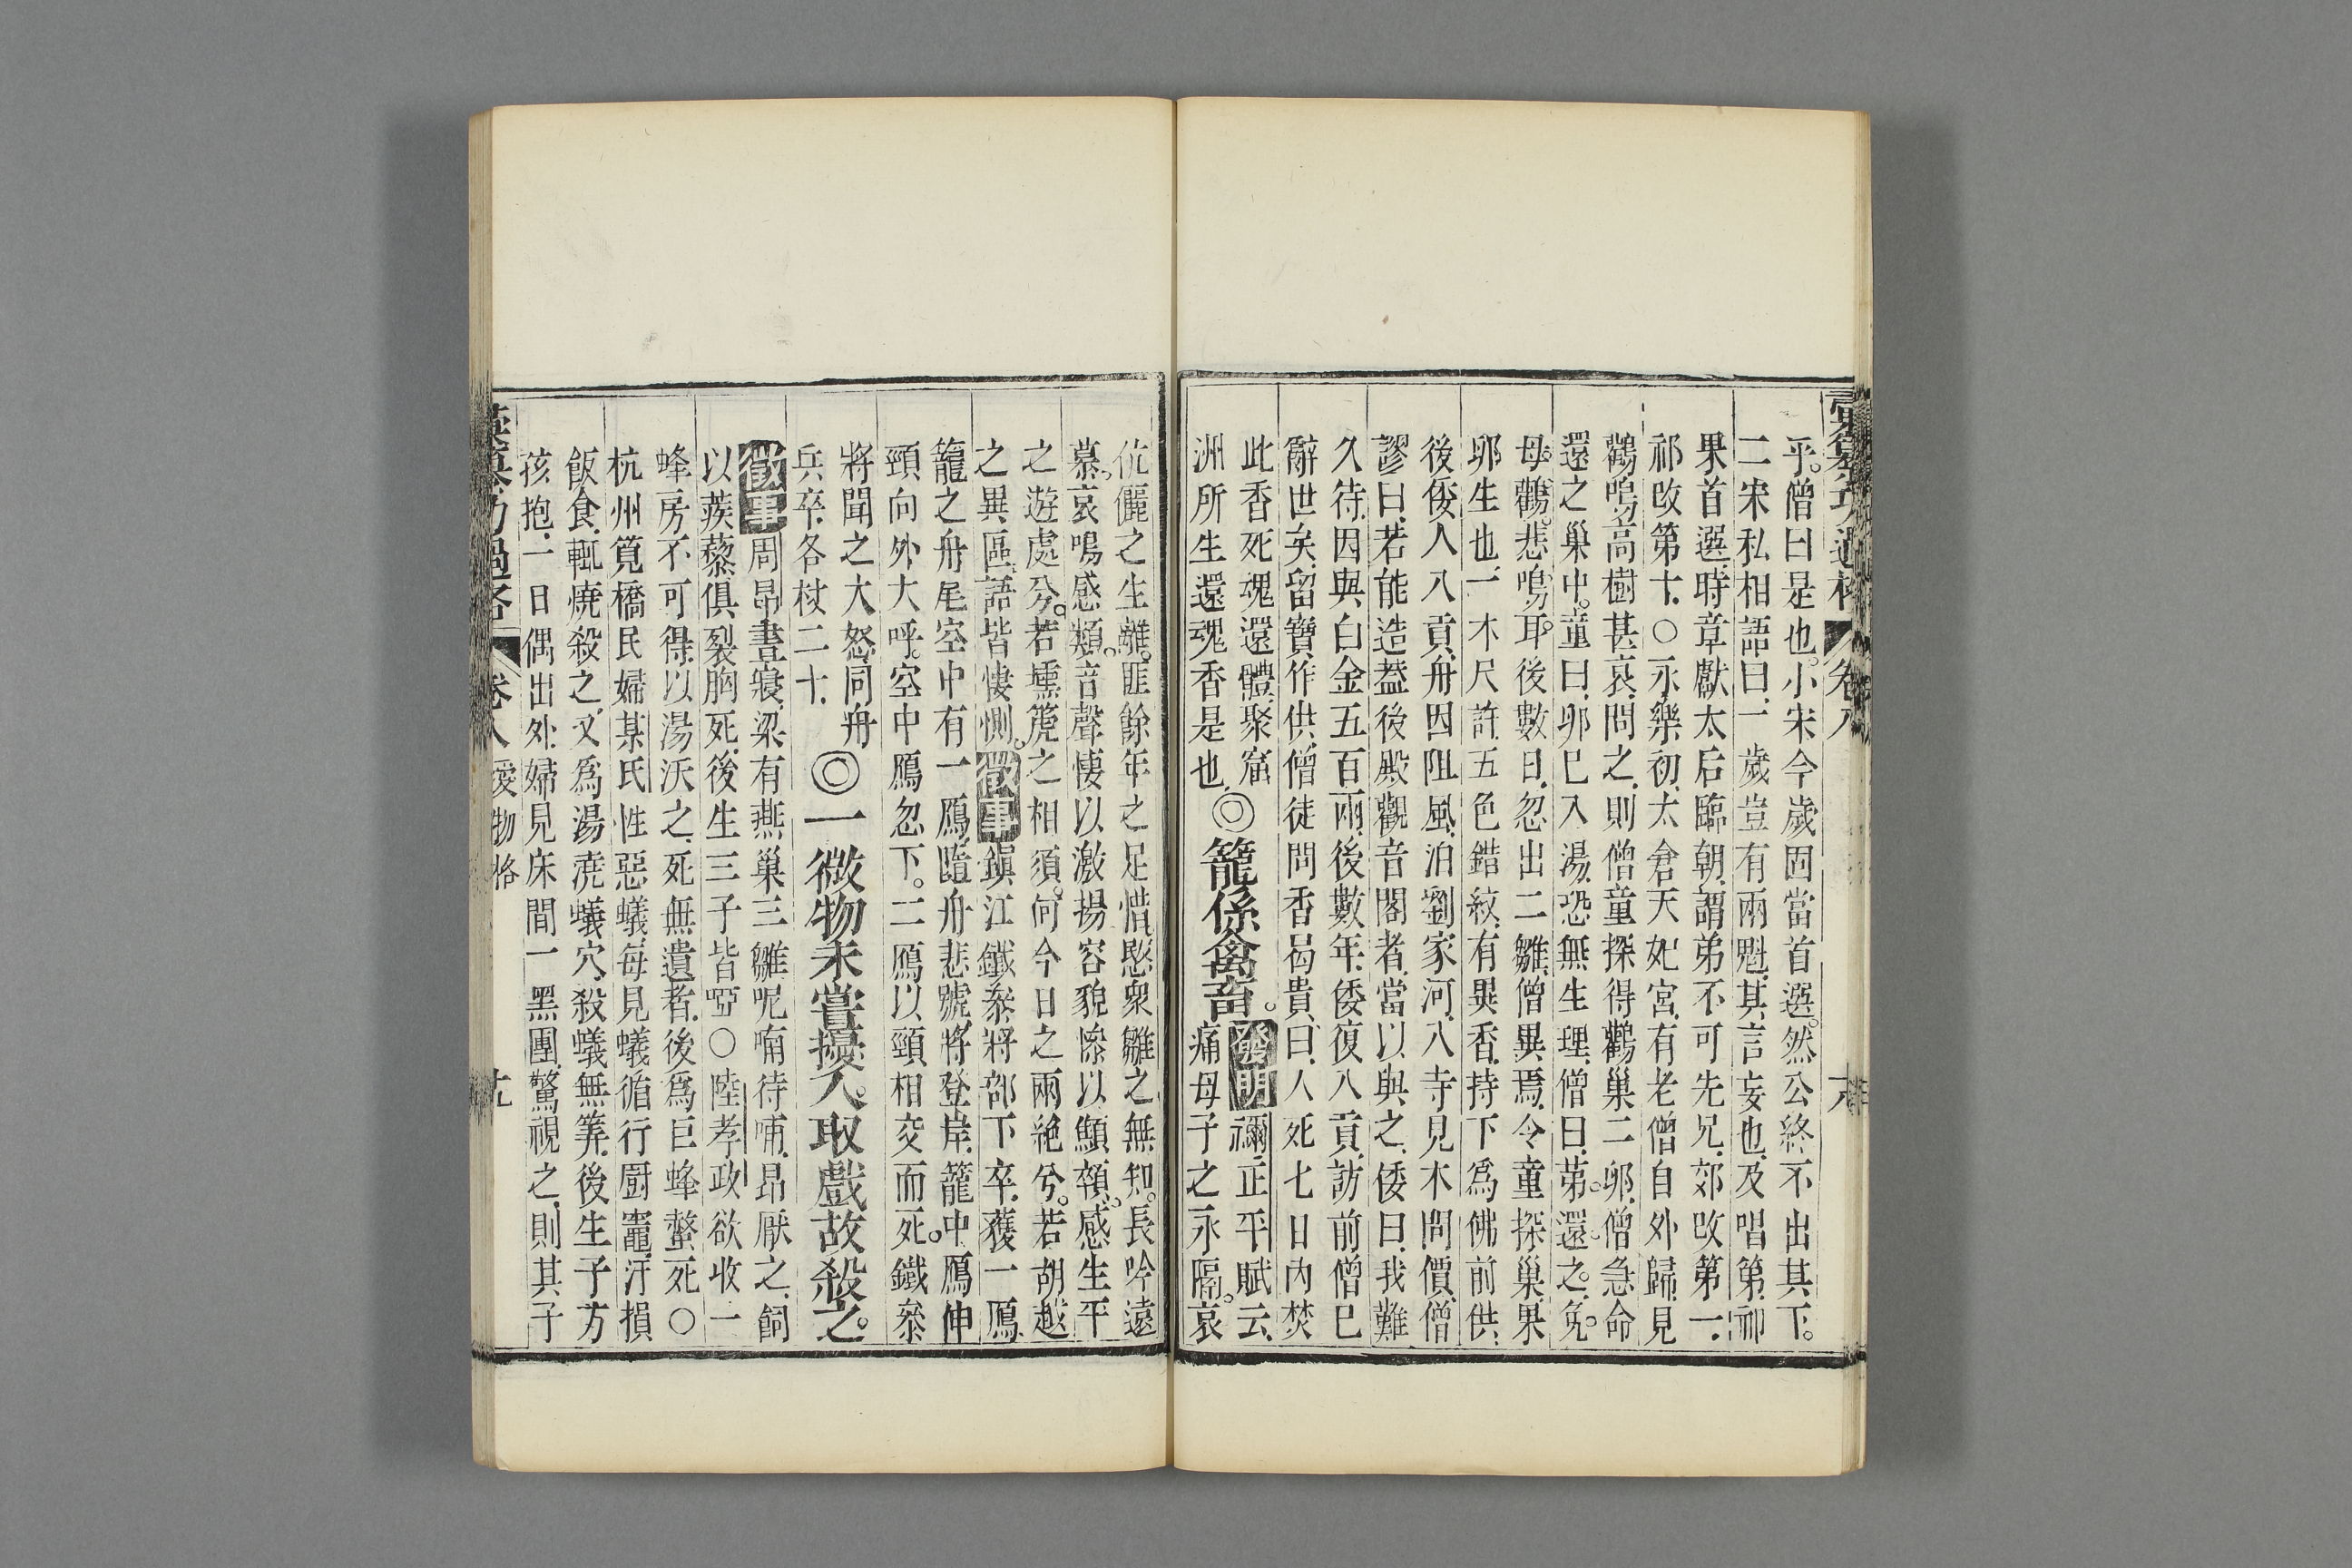 彙纂功過格 卷八
乎。僧曰是也。小宋今歲固當首選。然公終不出其下。
二宋私相語曰、一歲豈有兩魁、其言妄也、及唱第、祁
果首選、時章獻太后臨朝、謂弟不可先兄、郊改第一、
祁改第十、○永樂初、太倉天妃宮、有老僧自外歸、見
鸛鳴高樹甚哀、問之、則僧童探得鸛巢二卵、僧急命
還之巢中。童曰、卵已入湯、恐無生理、僧曰、苐。還。之。免。
母。鸛。悲。鳴。耳。後數日、忽出二雛、僧異焉、令童探巢、果
卵生也、一木尺許、五色錯紋、有異香、持下爲佛前供、
後倭人入貢、舟因阻風、泊劉家河、入寺見木問價、僧
謬曰、若能造葢後殿觀音閣者、當以與之、倭曰、我難
久待、因與白金五百兩、後數年、倭復入貢、訪前僧已
辭世矣、留寶作供、僧徒問香曷貴、曰、人死七日內焚
此香、死魂還體、聚窟
洲所生還魂香是也、
◎籠係禽畜。
發明 禰正平賦云、
痛母子之永隔。哀
伉儷之生離。匪餘年之足惜、愍衆雛之無知。長吟遠
慕。哀鳴感類。音聲悽以激揚、容貌慘以顦顇。感生平
之遊處兮。若壎箎之相須。何今日之兩絶兮。若胡越
之異區、語皆悽惻。徵事 鎭江鐵叅將部下卒、獲一鴈
籠之舟尾、空中有一鴈、隨舟悲號、將登岸、籠中鴈伸
頸向外大呼。空中鴈忽下。二鴈以頸相交而死。鐵叅
將聞之大怒、同舟
兵卒、各杖二十、
◎一微物未嘗擾人。取戲故殺之。
徵事 周昂晝寢、梁有燕巢、三雛呢喃待哺、昂厭之、飼
以蒺藜、俱裂胸死、後生三子皆啞○陸孝政欲收一
蜂房不可得、以湯沃之、死無遺者、後爲巨蜂螫死○
杭州筧橋民婦某氏性惡蟻、每見蟻循行厨竈、汙損
飯食、輒燒殺之、又爲湯澆蟻穴、殺蟻無筭、後生子方
孩抱、一日偶出外、婦見床間一黑團、驚視之、則其子
卷八 愛物格